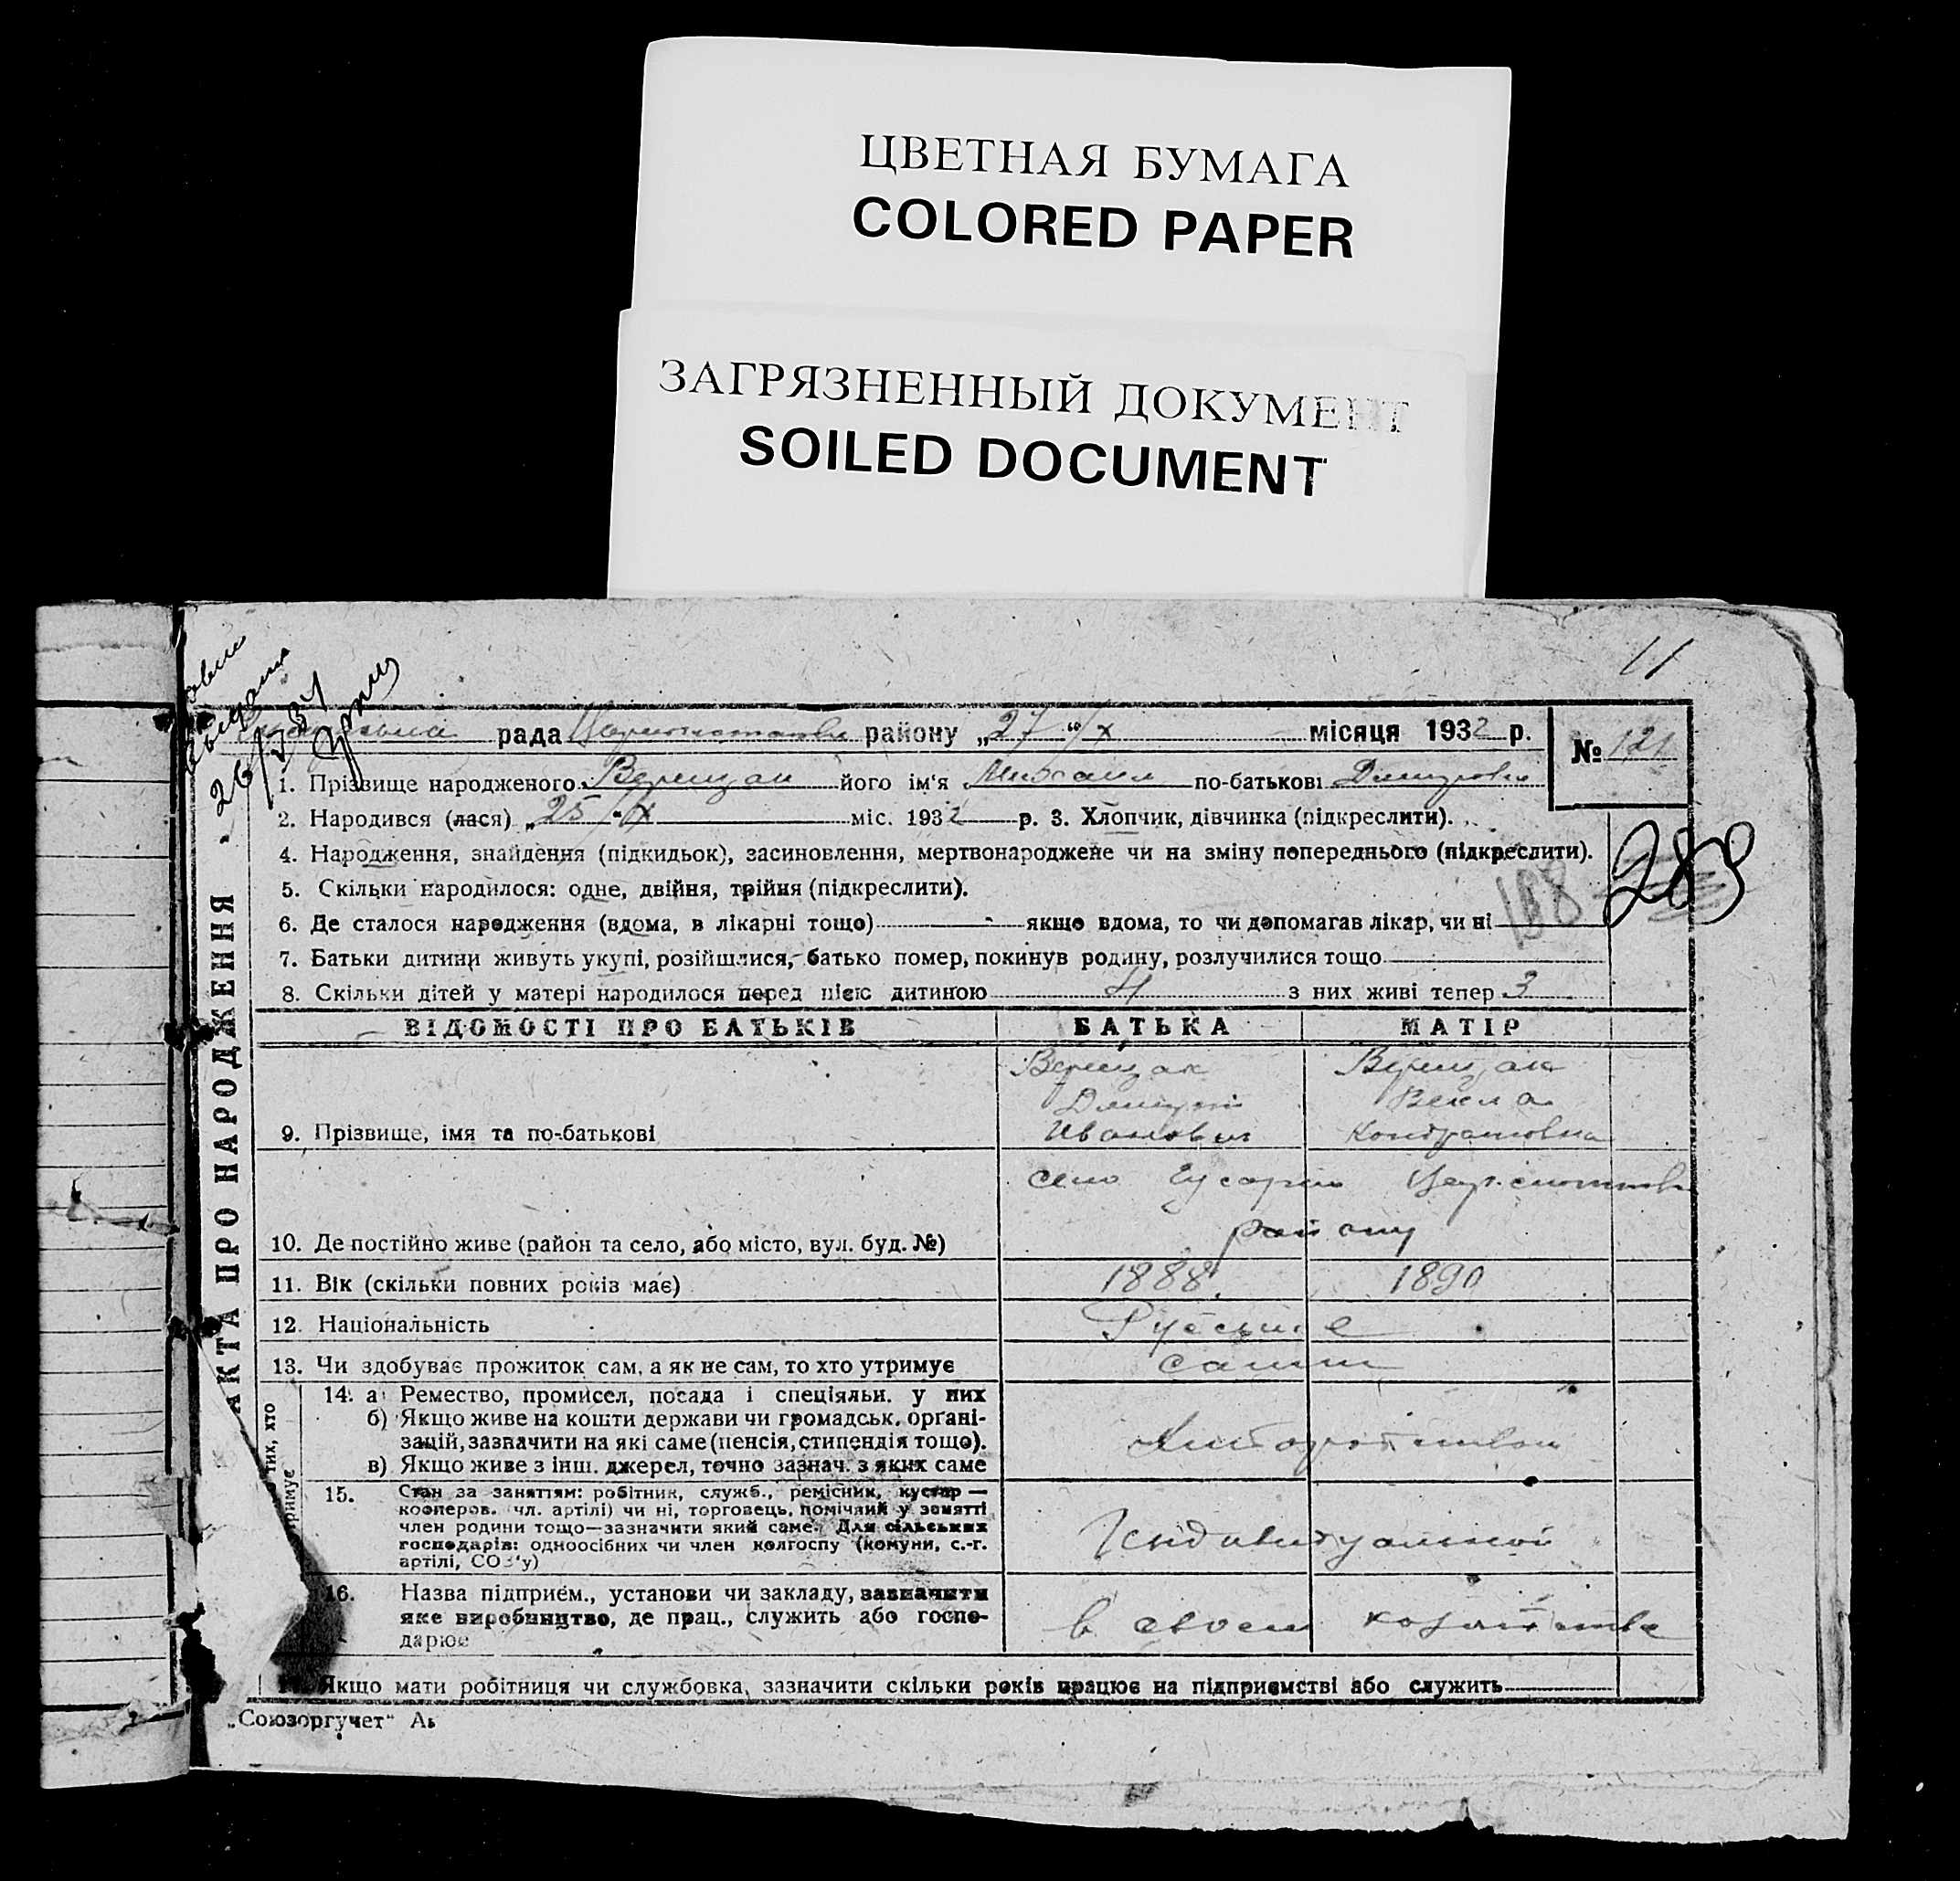 ЦВЕТНАЯ БУМАГА
COLORED PAPER
ЗАГРЯЗНЕННЫЙ ДОКУМЕНТ
SOILED DOCUMENT
11
рада району „27“/X місяця 1932 р.
№ 121
26/
1. Прізвище народженого Верещак його ім'я Михаил по-батькові
2. Народився (лася) „25“/IX міс. 1932 р. 3. Хлопчик, дівчинка (підкреслити).
4. Народження, знайдення (підкидьок), засиновлення, мертвонароджене чи на зміну попереднього (підкреслити).
283
5. Скільки народилося: одне, двійня, трійня (підкреслити).
6. Де сталося народження (вдома, в лікарні тощо) - якщо вдома, то чи допомагав лікар, чи ні
7. Батьки дитини живуть укупі, розійшлися, батько помер, покинув родину, розлучилися тощо
8. Скільки дітей у матері народилося перед цією дитиною 4 з них живі тепер 3
АКТА ПРО НАРОДЖЕННЯ
ВІДОМОСТІ ПРО БАТЬКІВ БАТЬКА МАТІР
Верещак Верещак
Дмитрий Векла
9. Прізвище, імя та по-батькові Иванович Кондратовна
село
району
10. Де постійно живе (район та село, або місто, вул. буд. №)
11. Вік (скільки повних років має) 1888 1890
12. Національність Русские
13. Чи здобуває прожиток сам, а як не сам, то хто утримує сами
тих, хто
14. а) Ремество, промисел, посада і спеціяльн. у них
б) Якщо живе на кошти держави чи громадськ. органі-
зацій, зазначити на які саме (пенсія, стипендія тощо).
в) Якщо живе з інш. джерел, точно зазнач. з яких саме
15. Стан за заняттям: робітник, служб., ремісник, кустар —
кооперов. чл. артілі) чи ні, торговець, помічний у занятті
член родини тощо—зазначити який саме. Для сільських
господарів: одноосібних чи член колгоспу (комуни, с.-г.
артілі, СОЗ'у)
16. Назва підприєм., установи чи закладу, зазначити
яке виробництво, де прац., служить або госпо-
дарює
в своем
Якщо мати робітниця чи службовка, зазначити скільки років працює на підприємстві або служить
„Союзоргучет“